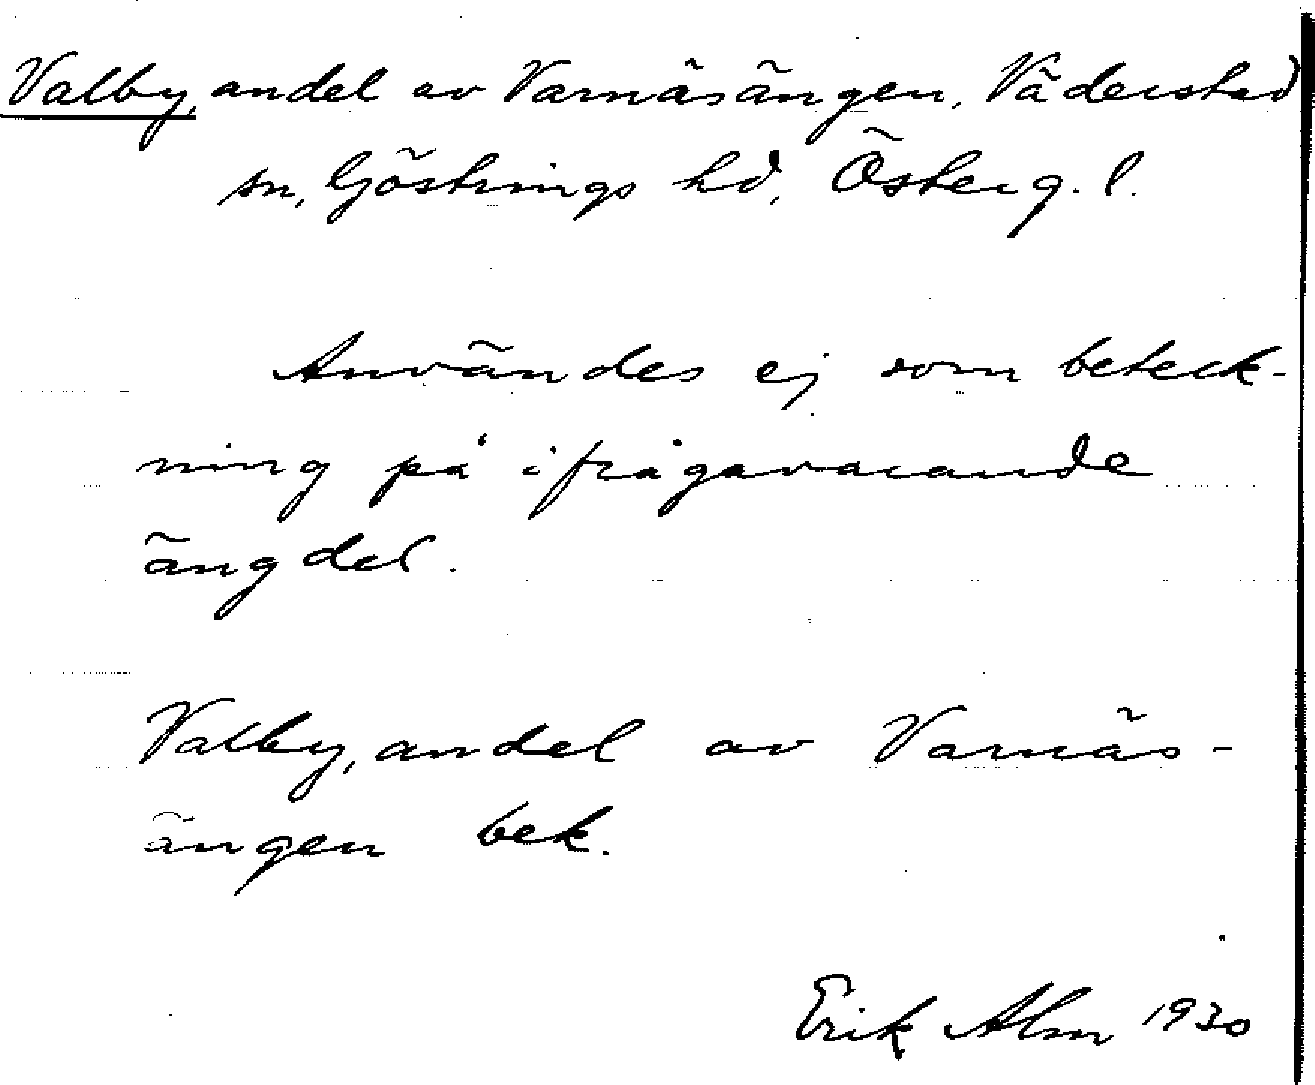 Valby, andel av Varnäsängen, Väderstad
sn, Göstrings hd, Österg. l.
Användes ej som beteck-
ning på ifrågavarande
ängdel.
Valby, andel av Varnäs-
ängen bek.
Erik Alm 1930